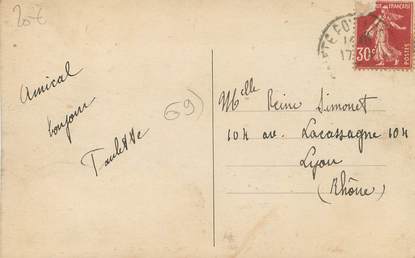 20€
Amical
bonjour
Paulette
69)
Melle Reine Simonet
104 av. Lacassagne 104
Lyon
(Rhône)
FRANÇAISE
30c
POSTES
17